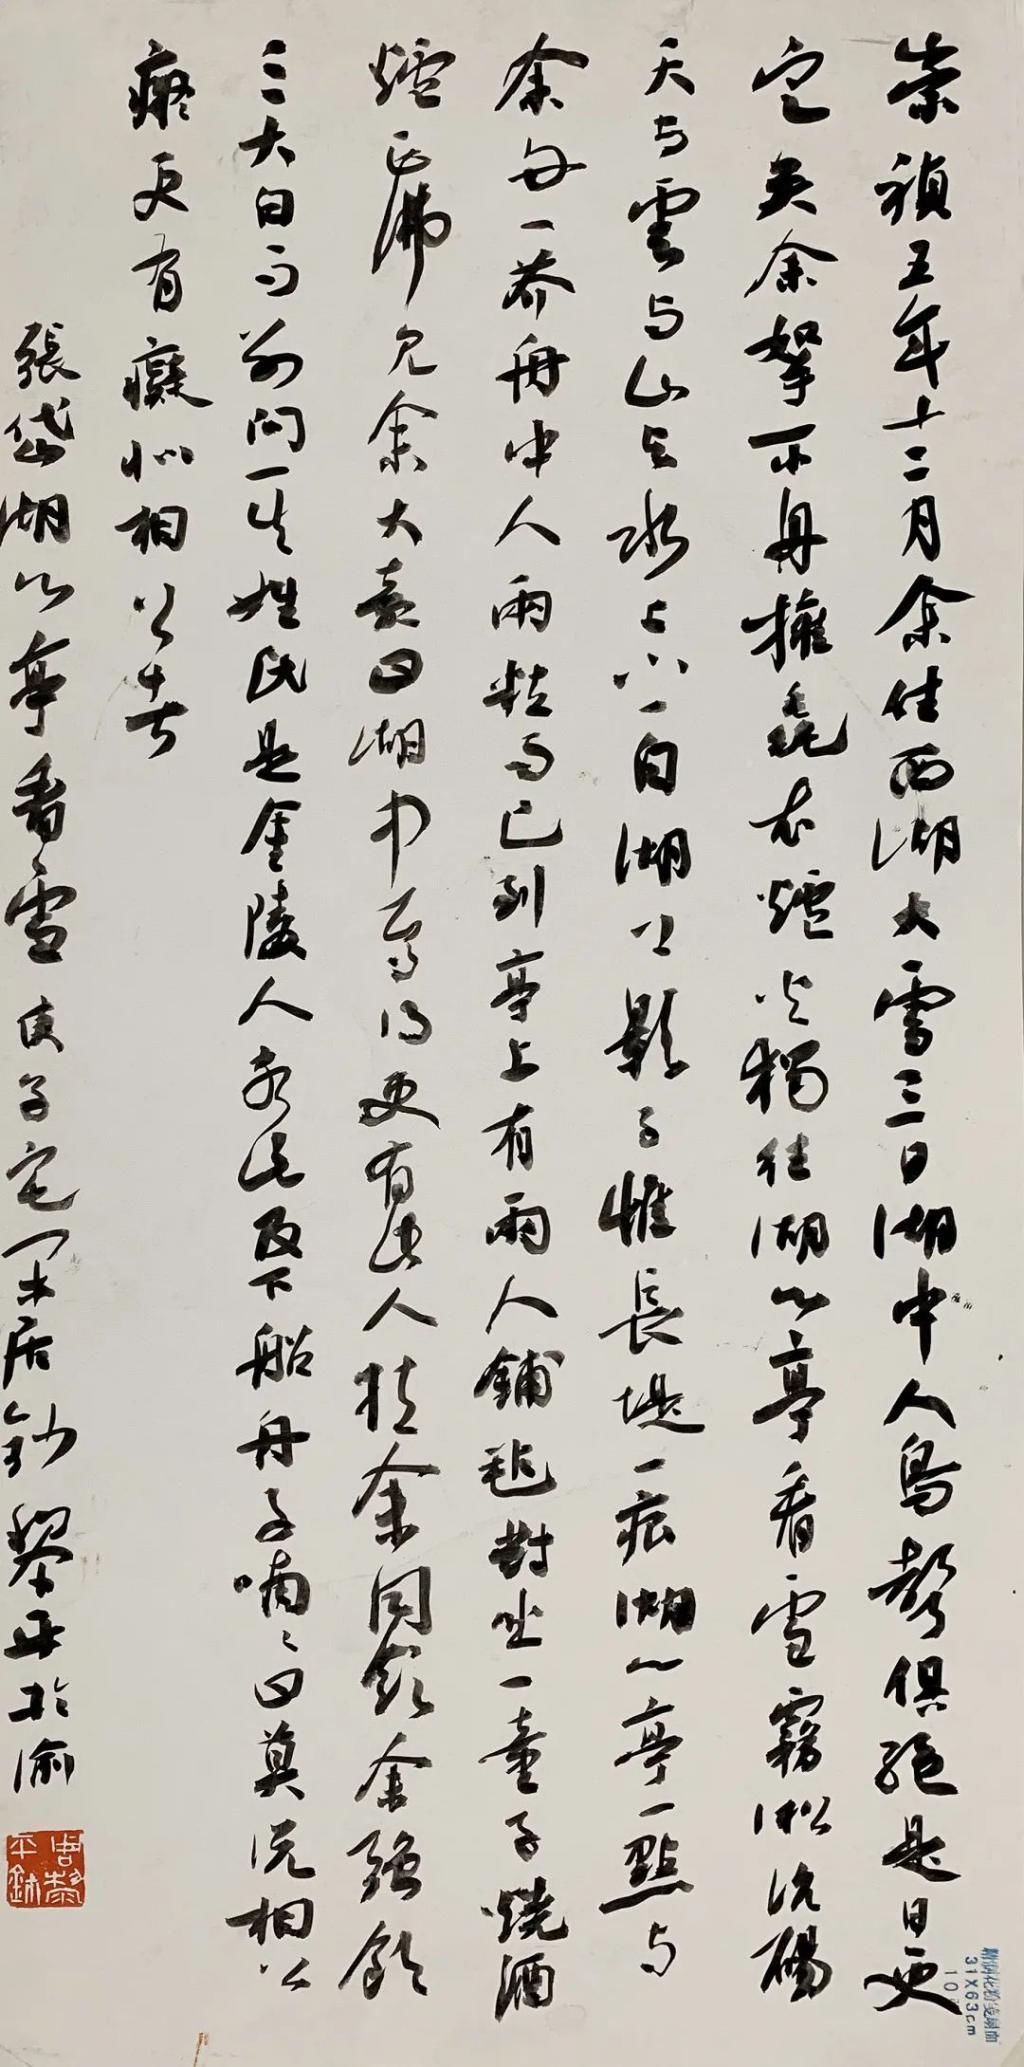 崇禎五年十二月余住西湖大雪三日湖中人鳥聲俱絕是日更
定矣余拏一小舟擁毳衣爐火獨往湖心亭看雪霧凇沆碭
天与雲与山与水上下一白湖上影子惟長堤一痕湖心亭一點与
余舟一芥舟中人兩粒而已到亭上有兩人鋪氈對坐一童子燒酒
爐正沸見余大喜曰湖中焉得更有此人拉余同飲余強飲
三大白而別問其姓氏是金陵人客此及下船舟子喃〻曰莫說相公
痴更有癡似相公者
張岱湖心亭看雪庚子宅居鈔黎平於渝
周黎平鉥
31X63cm
10